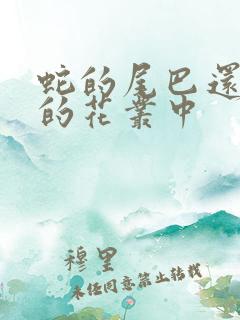 蛇的尾巴還
的花叢中
穆里
未經同意禁止轉載